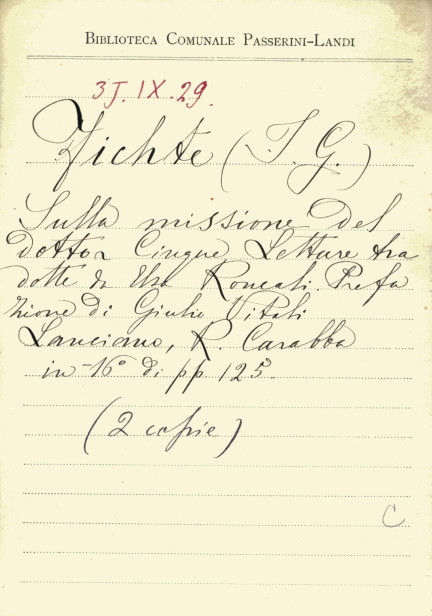 BIBLIOTECA COMUNALE PASSERINI-LANDI
3J.IX.29.
Fichte (I. G.)
Sulla missione del
dotto Cinque Letture tra
dotte da Elsa Roncali. Prefa
zione di Giulio Vitali
Lanciano, R. Carabba
in-16° di pp. 125.
(2 copie)
C